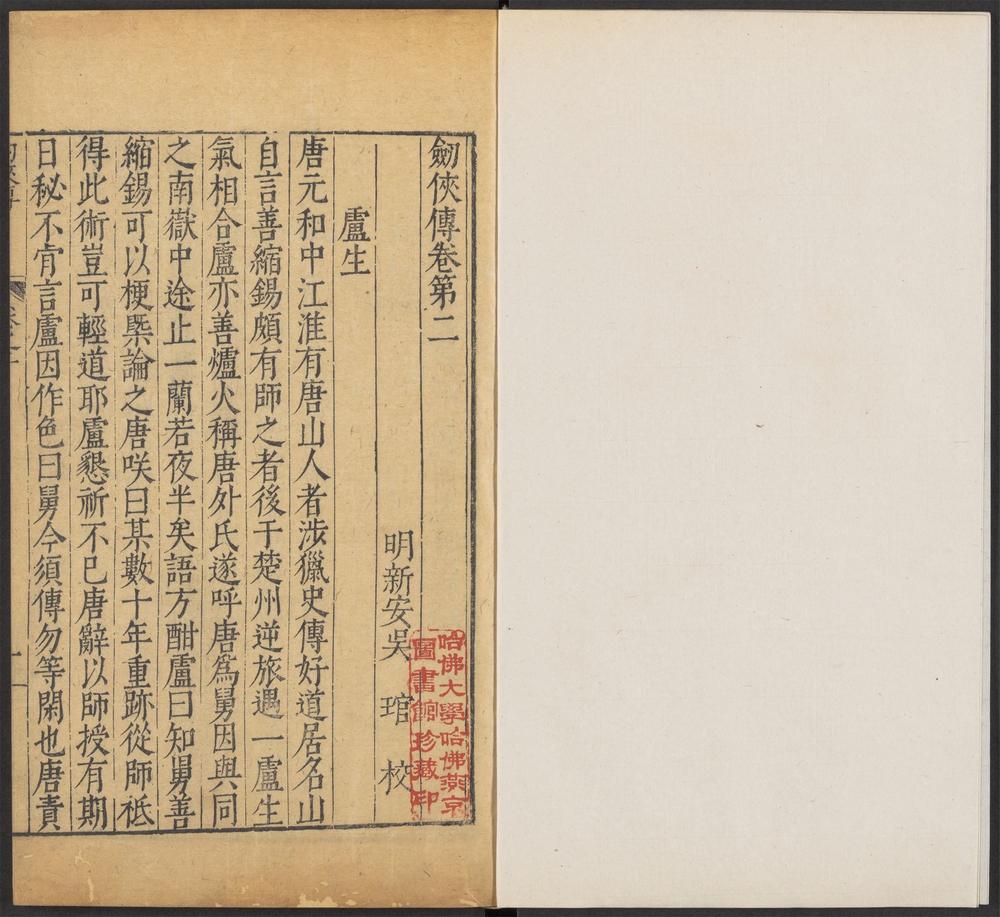 劒俠傳卷第二
明新安吳 琯 校
盧生
唐元和中江淮有唐山人者涉獵史傳好道居名山
自言善縮錫頗有師之者後于楚州逆旅遇一盧生
氣相合盧亦善爐火稱唐外氏遂呼唐爲舅因與同
之南嶽中途止一蘭若夜半矣語方酣盧曰知舅善
縮錫可以梗槩論之唐咲曰某數十年重跡從師祇
得此術豈可輕道耶盧懇祈不已唐辭以師授有期
日秘不肯言盧因作色曰舅今須傳勿等閑也唐責
哈佛大學哈佛燕京
圖書館珍藏印